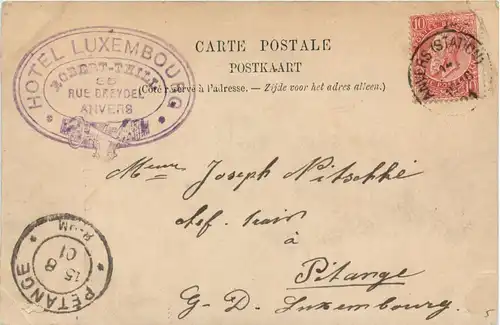 HOTEL LUXEMBOURG
35
RUE BREYDEL
ANVERS
CARTE POSTALE
POSTKAART
(Côté réservé à l'adresse. — Zijde voor het adres alleen.)
10
ANVERS (STATION)
Joseph Nitschké
chef. train
à
Pétange
G-D. Luxembourg.
PÉTANGE
15 8
01
8-9M
5